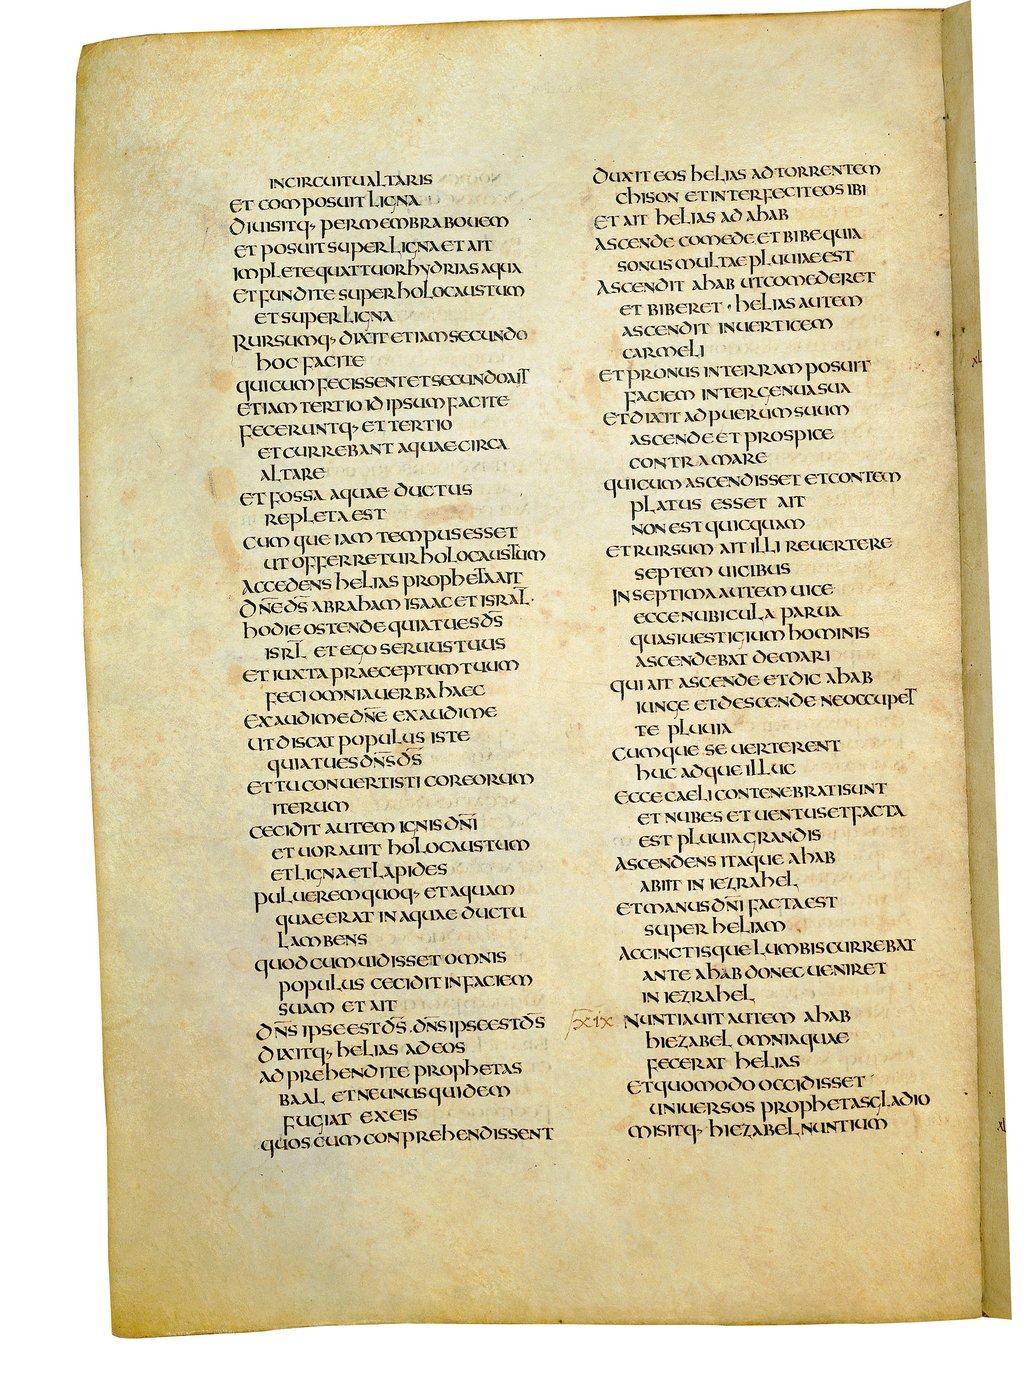 INCIRCUITU ALTARIS
ET COMPOSUIT LIGNA
DIUISITQ, PER MEMBRA BOUEM
ET POSUIT SUPER LIGNA ET AIT
IMPLETE QUATTUOR HYDRIAS AQUA
ET FUNDITE SUPER HOLOCAUSTUM
ET SUPER LIGNA
RURSUMQ, DIXIT ETIAM SECUNDO
HOC FACITE
QUI CUM FECISSENT ET SECUNDO AIT
ETIAM TERTIO ID IPSUM FACITE
FECERUNTQ, ET TERTIO
ET CURREBANT AQUAE CIRCA
ALTARE
ET FOSSA AQUAE DUCTUS
REPLETA EST
CUMQUE IAM TEMPUS ESSET
UT OFFERRETUR HOLOCAUSTUM
ACCEDENS HELIAS PROPHETA AIT
DN̄E D̄S ABRAHAM ISAAC ET ISRAL̄·
HODIE OSTENDE QUIA TU ES D̄S
ISRL̄ ET EGO SERUUS TUUS
ET IUXTA PRAECEPTUM TUUM
FECI OMNIA UERBA HAEC
EXAUDI ME DN̄E EXAUDI ME
UT DISCAT POPULUS ISTE
QUIA TU ES DN̄S D̄S
ET TU CONUERTISTI COR EORUM
ITERUM
CECIDIT AUTEM IGNIS DN̄I
ET UORAUIT HOLOCAUSTUM
ET LIGNA ET LAPIDES
PULUEREM QUOQ, ET AQUAM
QUAE ERAT IN AQUAE DUCTU
LAMBENS
QUOD CUM UIDISSET OMNIS
POPULUS CECIDIT IN FACIEM
SUAM ET AIT
DN̄S IPSE EST D̄S· DN̄S IPSE EST D̄S
DIXITQ, HELIAS AD EOS
ADPREHENDITE PROPHETAS
BAAL ET NE UNUS QUIDEM
FUGIAT EX EIS
QUOS CUM CONPREHENDISSENT
DUXIT EOS HELIAS AD TORRENTEM
CHISON ET INTERFECIT EOS IBI
ET AIT HELIAS AD AHAB
ASCENDE COMEDE ET BIBE QUIA
SONUS MULTAE PLUUIAE EST
ASCENDIT AHAB UT COMEDERET
ET BIBERET · HELIAS AUTEM
ASCENDIT IN UERTICEM
CARMELI
ET PRONUS IN TERRAM POSUIT
FACIEM INTER GENUA SUA
ET DIXIT AD PUERUM SUUM
ASCENDE ET PROSPICE
CONTRA MARE
QUI CUM ASCENDISSET ET CONTEM
PLATUS ESSET AIT
NON EST QUICQUAM
ET RURSUM AIT ILLI REUERTERE
SEPTEM UICIBUS
IN SEPTIMA AUTEM UICE
ECCE NUBICULA PARUA
QUASI UESTIGIUM HOMINIS
ASCENDEBAT DE MARI
QUI AIT ASCENDE ET DIC AHAB
IUNGE ET DESCENDE NE OCCUPET
TE PLUUIA
CUMQUE SE UERTERENT
HUC ADQUE ILLUC
ECCE CAELI CONTENEBRATI SUNT
ET NUBES ET UENTUS ET FACTA
EST PLUUIA GRANDIS
ASCENDENS ITAQUE AHAB
ABIIT IN IEZRAHEL
ET MANUS DN̄I FACTA EST
SUPER HELIAM
ACCINCTISQUE LUMBIS CURREBAT
ANTE AHAB DONEC UENIRET
IN IEZRAHEL
xix NUNTIAUIT AUTEM AHAB
HIEZABEL OMNIA QUAE
FECERAT HELIAS
ET QUOMODO OCCIDISSET
UNIUERSOS PROPHETAS GLADIO
MISITQ, HIEZABEL NUNTIUM